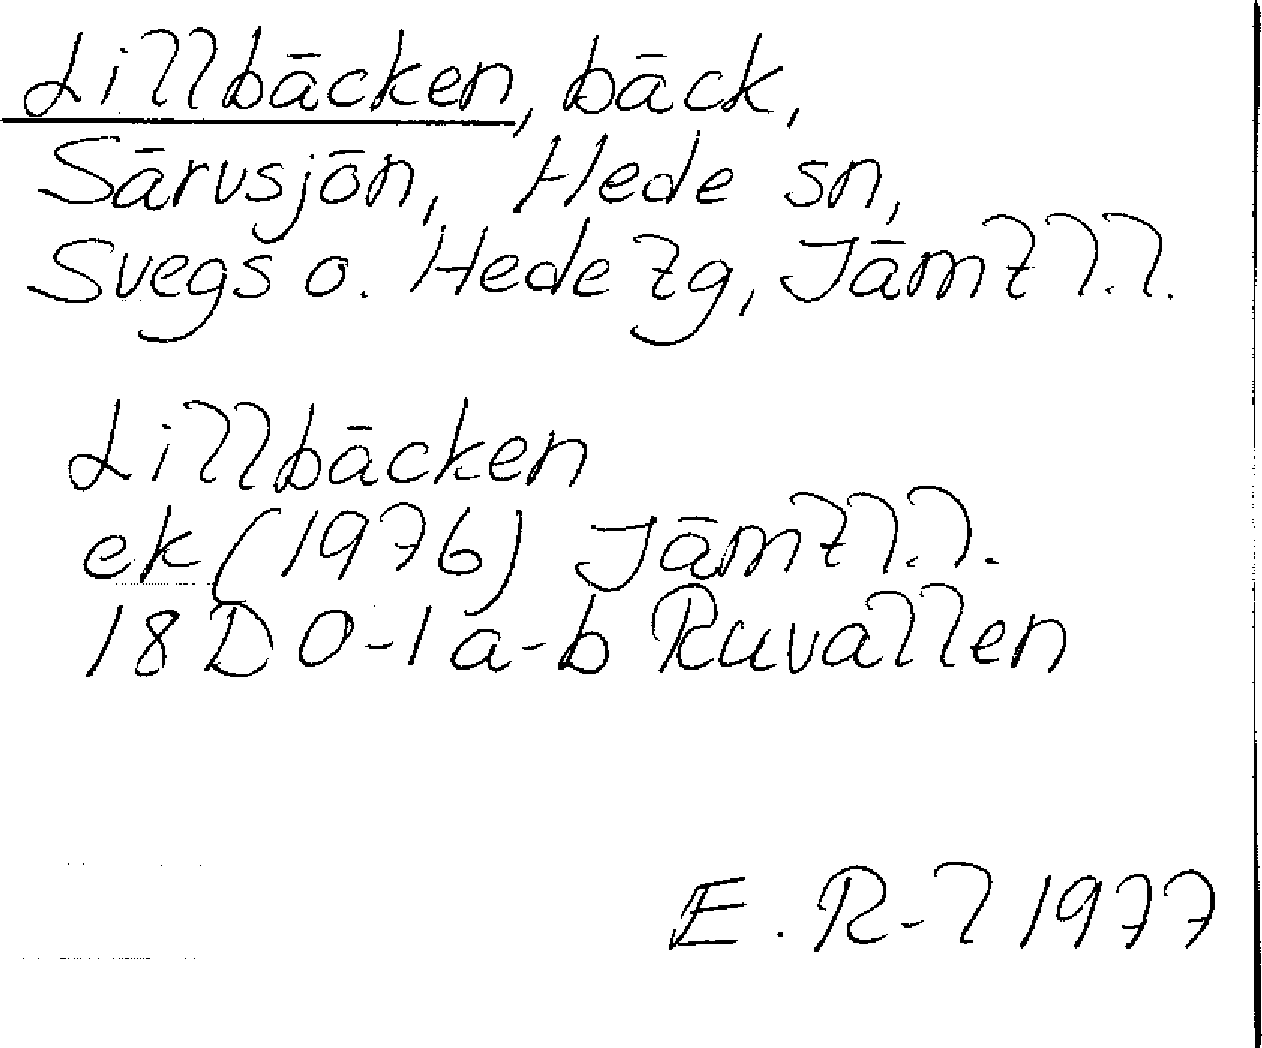 Lillbäcken, bäck,
Särvsjön, Hede sn,
Svegs o. Hede tg, Jämtl.l.
Lillbäcken
ek (1976) Jämtl.l.
18 D 0-1 a-b Ruvallen
E. R-l 1977